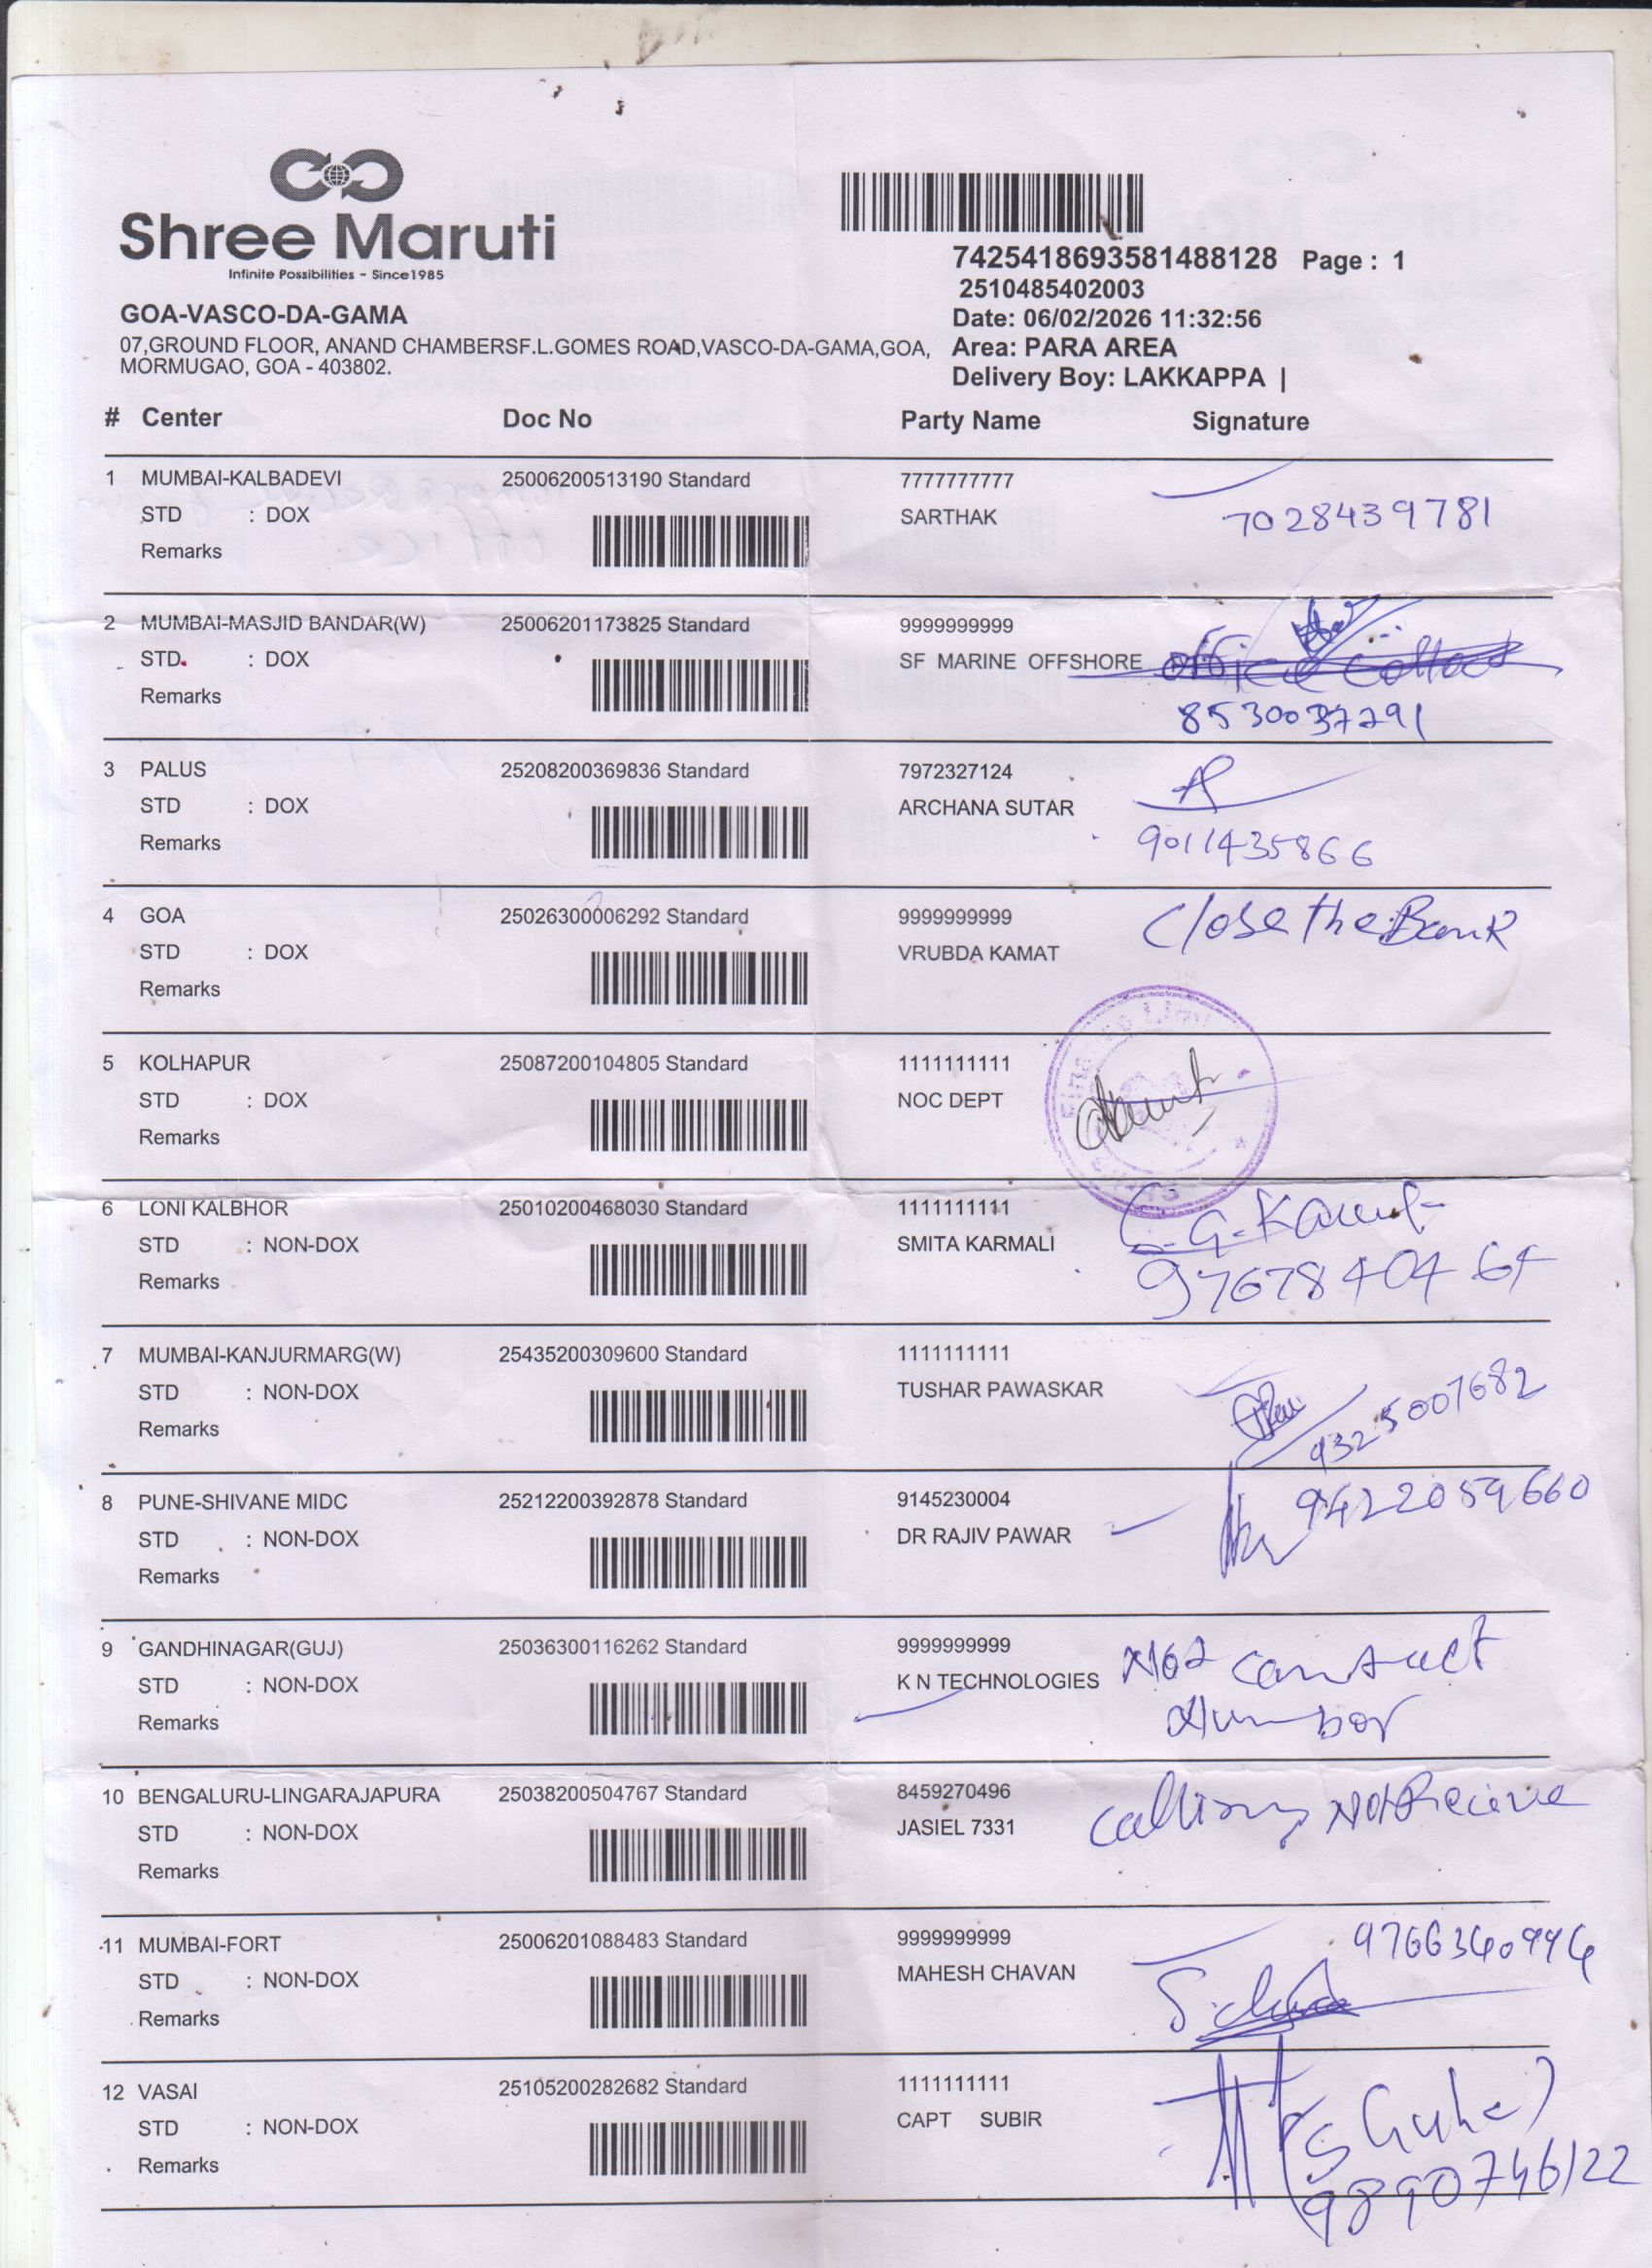 Shree Maruti
Infinite Possibilities - Since1985
7425418693581488128 Page : 1
2510485402003
GOA-VASCO-DA-GAMA
Date: 06/02/2026 11:32:56
07,GROUND FLOOR, ANAND CHAMBERSF.L.GOMES ROAD,VASCO-DA-GAMA,GOA,
MORMUGAO, GOA - 403802.
Area: PARA AREA
Delivery Boy: LAKKAPPA |
# Center Doc No Party Name Signature
1 MUMBAI-KALBADEVI 25006200513190 Standard 7777777777
STD : DOX SARTHAK 7028439781
Remarks
2 MUMBAI-MASJID BANDAR(W) 25006201173825 Standard 9999999999
STD : DOX SF MARINE OFFSHORE office
Remarks 8530037291
3 PALUS 25208200369836 Standard 7972327124
STD : DOX ARCHANA SUTAR
Remarks 9011435866
4 GOA 25026300006292 Standard 9999999999 Close the Bank
STD : DOX VRUBDA KAMAT
Remarks
5 KOLHAPUR 25087200104805 Standard 1111111111
STD : DOX NOC DEPT
Remarks
6 LONI KALBHOR 25010200468030 Standard 1111111111
STD : NON-DOX SMITA KARMALI
Remarks
7 MUMBAI-KANJURMARG(W) 25435200309600 Standard 1111111111
STD : NON-DOX TUSHAR PAWASKAR
Remarks 9325007682
8 PUNE-SHIVANE MIDC 25212200392878 Standard 9145230004 9422059660
STD : NON-DOX DR RAJIV PAWAR
Remarks
9 GANDHINAGAR(GUJ) 25036300116262 Standard 9999999999
STD : NON-DOX K N TECHNOLOGIES Not contact
Remarks Number
10 BENGALURU-LINGARAJAPURA 25038200504767 Standard 8459270496
STD : NON-DOX JASIEL 7331 calling Not Recive
Remarks
11 MUMBAI-FORT 25006201088483 Standard 9999999999
STD : NON-DOX MAHESH CHAVAN
Remarks
12 VASAI 25105200282682 Standard 1111111111
STD : NON-DOX CAPT SUBIR
Remarks 9890746122